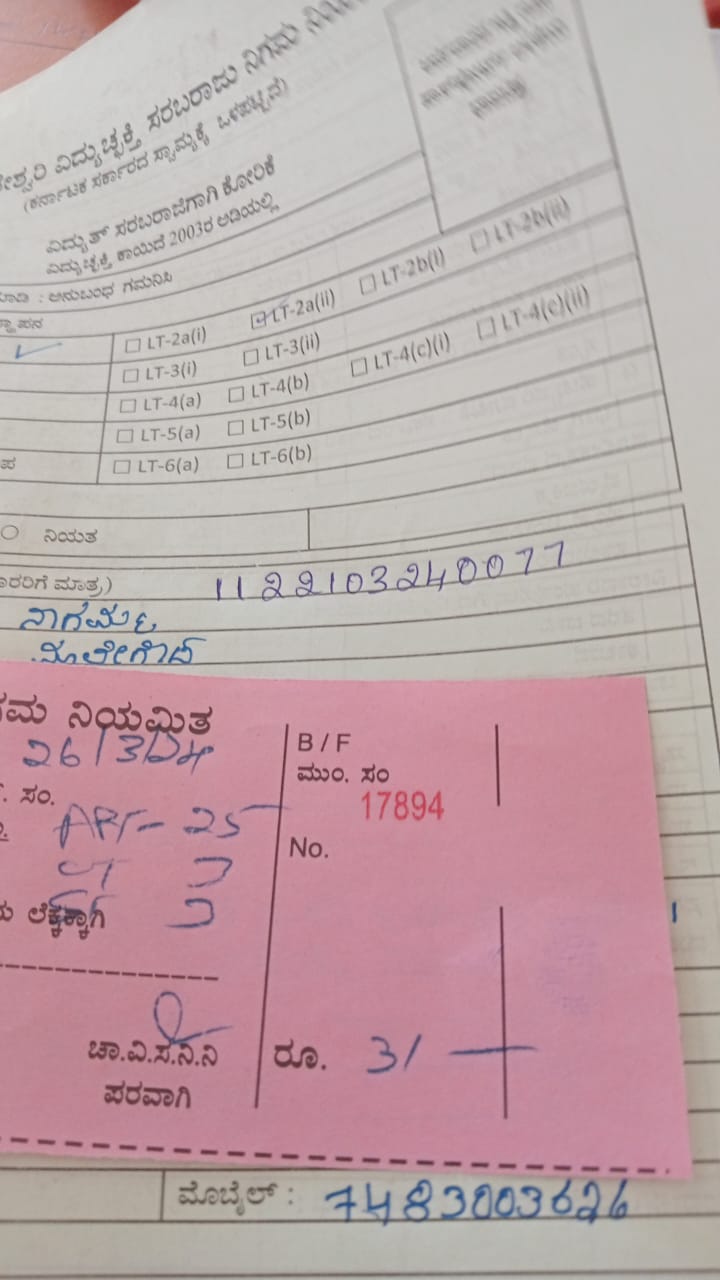 ವಿದ್ಯುಚ್ಛಕ್ತಿ ಸರಬರಾಜು ನಿಗಮ
(ಕರ್ನಾಟಕ ಸರ್ಕಾರದ ಸ್ವಾಮ್ಯಕ್ಕೆ ಒಳಪಟ್ಟಿದೆ)
ವಿದ್ಯುತ್ ಸರಬರಾಜಿಗಾಗಿ ಕೋರಿಕೆ
ವಿದ್ಯುಚ್ಛಕ್ತಿ ಕಾಯಿದೆ 2003ರ ಅಡಿಯಲ್ಲಿ
: ಅನುಬಂಧ ಗಮನಿಸಿ
LT-2a(i) LT-2a(ii) LT-2b(i) LT-2b(ii)
LT-3(i) LT-3(ii)
LT-4(a) LT-4(b) LT-4(c)(i) LT-4(c)(ii)
LT-5(a) LT-5(b)
LT-6(a) LT-6(b)
ನಿಯತ
ಮಾತ್ರ) 1122103240077
ನಿಯಮಿತ
B / F
ಮುಂ. ಸಂ
17894
ಸಂ.
25
No.
3
3
ಲೆಕ್ಕಕ್ಕಾಗಿ
ಚಾ.ವಿ.ಸ.ನಿ.ನಿ
ಪರವಾಗಿ
ರೂ. 31
ಮೊಬೈಲ್ : 7483003626